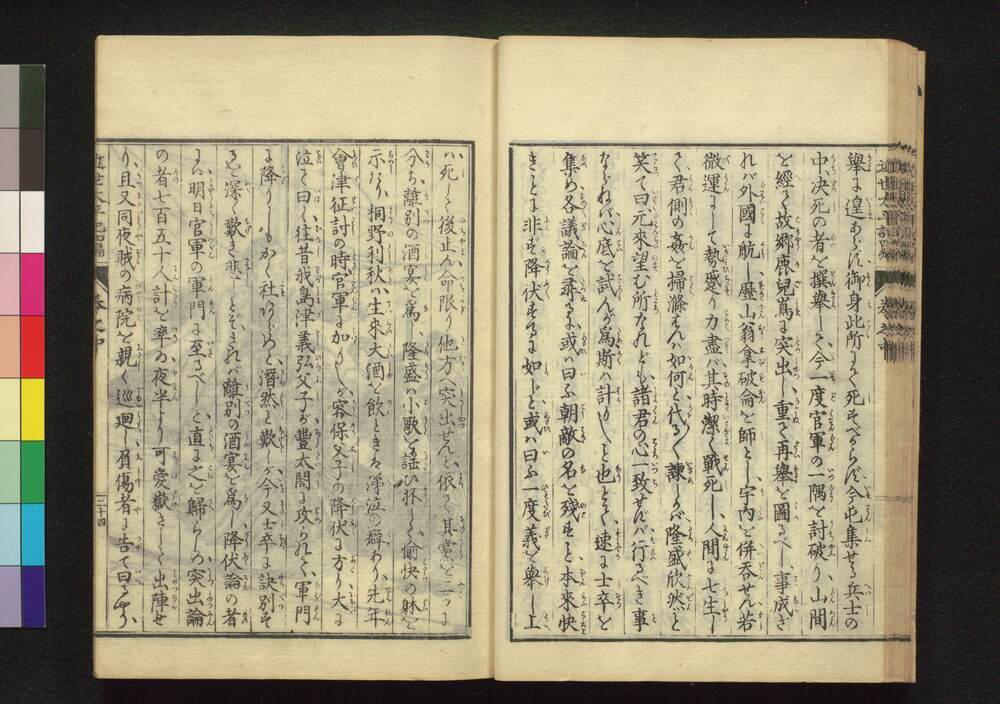 擧に遑あらす御身此所にて死すべからず今屯集せる兵士の
中决死の者を撰擧して今一度官軍の一隅を討破り山間
を經て故郷鹿兒島に突出し重て再擧を圖るべし事成ざ
れバ外國に航し歴山翁拿破侖を師とし宇内を併呑せん若
微運にして勢蹙り力盡バ其時潔く戰死し人間に七生し
て君側の姦を掃滌せんハ如何と代る〳〵諫しかバ隆盛欣然と
笑て曰元來望む所なれども諸君の心一致せずバ行るべき事
ならねバ心底を試んが爲斯ハ計りしと也とて速に士卒を
集め各議論を尋るに或ハ曰ふ朝敵の名を殘すこと本來快
きことに非ず降伏するに如じと或ハ曰ふ一度義を擧し上
ハ死して後止ん命限り他方へ突出せんと依て其黨を二ツに
分ち離別の酒宴を爲し隆盛ハ小歌を謡ひ抔して愉快の躰を
示なり桐野利秋ハ生來大酒を飲ときハ涕泣の癖あり先年
會津征討の時官軍に加りしが容保父子の降伏に方り大に
泣て曰く往昔我島津義弘父子が豊太閤に攻られて軍門
に降りしもかく社ありめと潸然と歎しが今又士卒に訣別そ
きを深く歎き悲しとぞされバ離別の酒宴を爲し降伏論の者
にハ明日官軍の軍門に至るべしと直に之を歸らしめ突出論
の者七百五十人計を率ゐ夜半より可愛嶽さして出陣せ
り且又同夜賊の病院を親く巡廻し負傷者に告て曰く
近世太平記四編
卷之中
二十四